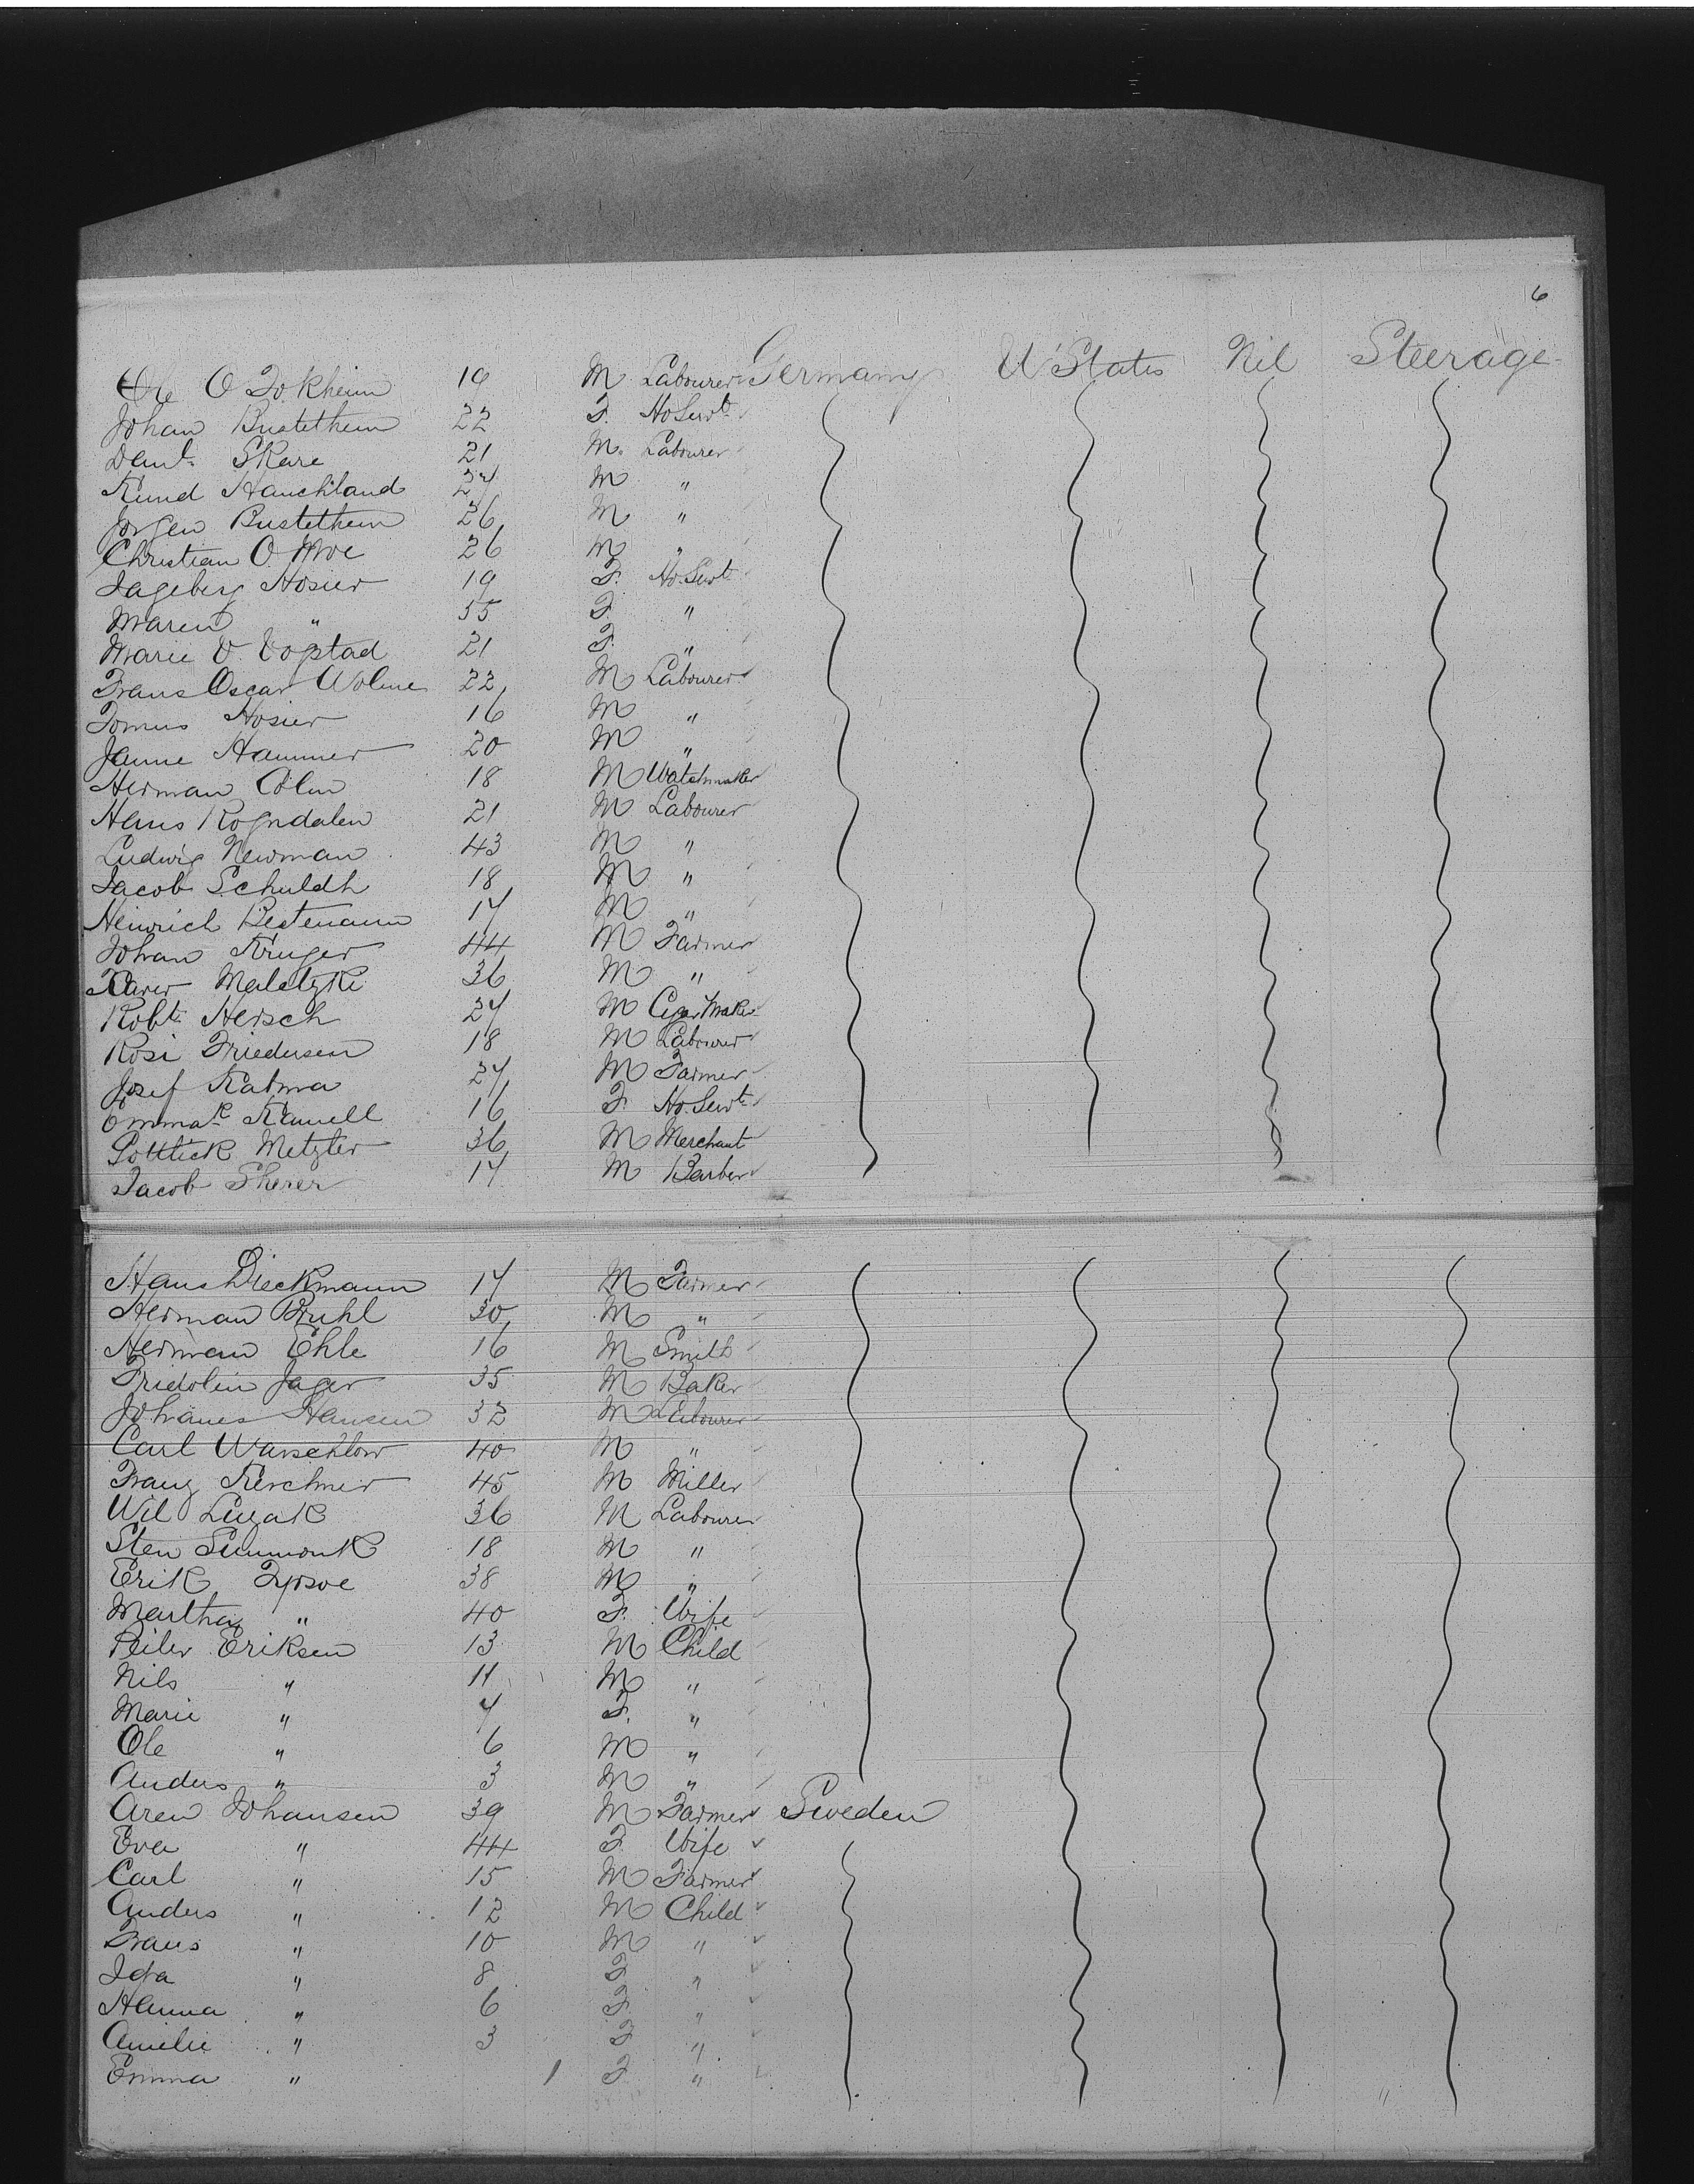 6
Ole O Tokheim 19 M Labourer Germany U States Nil Steerage
Johan Bustethun 22 F. Ho Servt
Danl. Skare 21 M. Labourer
Knud Hauchland 27 M "
Jorgen Bustethun 26 M "
Christian O. Moe 26 M "
Jageberg Hosier 19 F. Ho. Servt
Maren " 55 F. "
Marie V. Vogstad 21 F. "
Frans Oscar Wolme 22 M Labourer
Tomus Hosier 16 M "
Janne Hammer 20 M "
Herman Colm 18 M Watchmaker
Hans Rogndalen 21 M Labourer
Ludwig Newman 43 M "
Jacob Schuldh 18 M "
Heinrich Bestemann 17 M "
Johan Kruger 44 M Farmer
Xaver Maletzke 36 M "
Robt. Hersch 27 M Cigar Maker
Rosi Friedersen 18 M Labourer
Josef Katma 27 M Farmer
Emma Kamell 16 F. Ho. Servt
Gottlick Metzler 36 M Merchant
Jacob Sherer 17 M Barber
Hans Dieckmann 17 M Farmer
Herman Bruhl 30 M "
Herman Ehle 16 M Smith
Fridolin Jager 35 M Baker
Johanes Hansen 32 M Labourer
Carl Warschlow 40 M "
Franz Kerchner 45 M Miller
Wil Luzak 36 M Labourer
Sten Summonk 18 M "
Erik Tyrsoe 38 M "
Martha " 40 F. Wife
Peiler Eriksen 13 M Child
Nils " 11 M "
Marie " 7 F. "
Ole " 6 M "
Anders " 3 M "
Aren Johansen 39 M Farmer Sweden
Eva " 44 F. Wife
Carl " 15 M Farmer
Anders " 12 M Child
Frans " 10 M "
Ida " 8 F "
Hanna " 6 F. "
Amelie " 3 F "
Emma " 1 F "